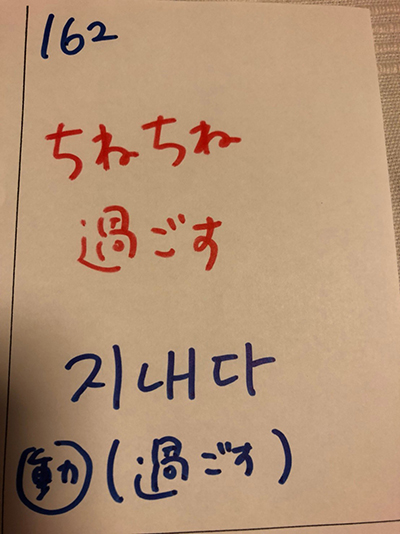 162
ちねちね
過ごす
지내다
動 (過ごす)